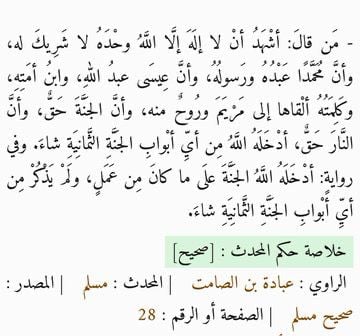 - مَن قالَ: أشْهَدُ أنْ لا إلَهَ إلَّا اللَّهُ وحْدَهُ لا شَرِيكَ له،
وأنَّ مُحَمَّدًا عَبْدُهُ ورَسولُهُ، وأنَّ عِيسَى عبدُ اللهِ، وابنُ أمَتِهِ،
وكَلِمَتُهُ ألْقاها إلى مَرْيَمَ ورُوحٌ منه، وأنَّ الجَنَّةَ حَقٌّ، وأنَّ
النَّارَ حَقٌّ، أدْخَلَهُ اللَّهُ مِن أيِّ أبْوابِ الجَنَّةِ الثَّمانِيَةِ شاءَ. وفي
روايةٍ: أدْخَلَهُ اللَّهُ الجَنَّةَ علَى ما كانَ مِن عَمَلٍ، ولَمْ يَذْكُرْ مِن
أيِّ أبْوابِ الجَنَّةِ الثَّمانِيَةِ شاءَ.
خلاصة حكم المحدث : [صحيح]
الراوي : عبادة بن الصامت | المحدث : مسلم | المصدر :
صحيح مسلم | الصفحة أو الرقم : 28